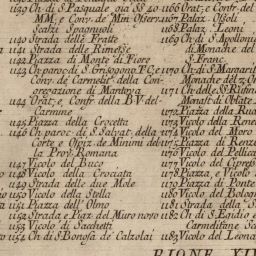 1139 Ch di S. Pasquale, oia SS 40
MM. e Conv. de' Min. Osserv.
Scalzi Spagnuoli
1140 Strada delle Fratte
1141 Strada delle Rimesse
1142 Piazza di Monte di Fiore
1143 Ch. paroc. di S. Grisogono, P. C. e
Conv. de' Carmelit. della Con-
gregazione di Mantova
1144 Orat. e, Confr. della B. V. del
Carmine
1145 Piazza della Crocetta
1146 Ch. paroc. di S. Salvat. della
Corte e Ospiz. de' Minimi del-
la Prov. Romana
1147 Vicolo del Buco
1148 Vicolo della Crociata
1149 Strada delle due Mole
1150 Vicolo della Stella
1151 Piazza dell' Olmo
1152 Strada e Piaz. del Muro novo
1153 Vicolo di Sacchetti
1154 Ch. di S. Bonosa de' Calzolai
1166 Orat. e Confr. del
1167 Palaz.
1168 Palaz. Leoni
1169 Ch. di S. Apollonia
di Monache del
S. Franc.
1170 Ch. di S. Margarita
Monache del
1171 Ch. delle SS. Rufina
Monast. di Oblate
1172 Piazza della
1173 Vicolo della
1174 Vicolo del Moro
1175 Piazza di Renzi
1176 Vicolo del
1177 Vicolo del
1178 Piazza, e Vicolo
1179 Piazza di Ponte
1180 Vicolo del Bologn
1181 Strada della
1182 Ch. di S. Egidio e
Carmelitane
1183 Vicolo del Leona
RIONE XI